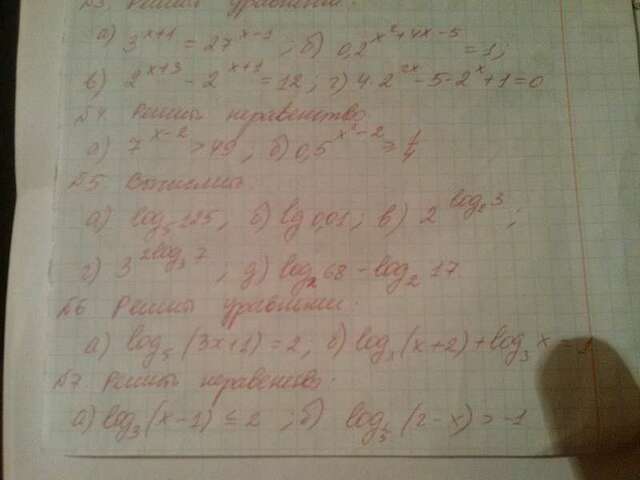 №3. Решить уравнения:
а) 3^(x+1) = 27^(x-1); б) 0,2^(x²+4x-5) = 1;
в) 2^(x+3) - 2^(x+1) = 12; г) 4·2^(2x) - 5·2^x + 1 = 0
№4 Решить неравенство
а) 7^(x-2) > 49; б) 0,5^(x²-2) ≥ 1/4
№5 Вычислить:
а) log₅ 125, б) lg 0,01; в) 2^(log₂ 3);
г) 3^(2log₃ 7); д) log₂ 68 - log₂ 17.
№6 Решить уравнения:
а) log₅ (3x+1) = 2, б) log₃ (x+2) + log₃ x = 1
№7. Решить неравенства:
а) log₃ (x-1) ≤ 2; б) log_(1/5) (2-x) > -1